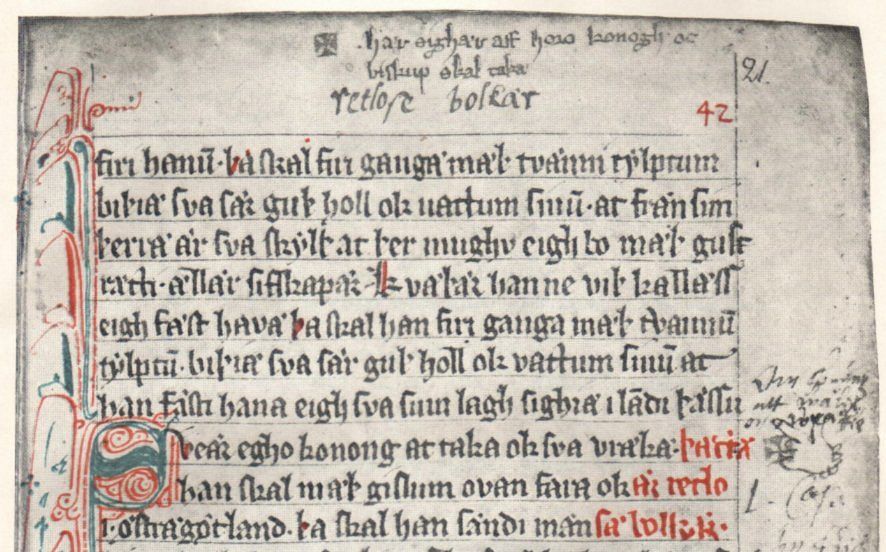 har eighær aff hwro konogh oc
biskup skal taka
retlose bolkær
21.
42
firi hanū· þa skal firi ganga mæþ tvænni tylptum
biþiæ sva sær guþ holl ok uattum sinū· at fræn sim
þerræ ær sva skylt at þer mughv eigh bo mæþ
rætti· allær sifskapær· væþær hanne viþ kallæss
eigh fæst hava þa skal han firi ganga mæþ tvænnū
tylptū· biþiæ sva sær guþ holl ok vattum sinū at
han fæsti hana eigh sva sum lagh sighiæ i lādi þæssu
Svear egho konong at taka ok sva vræka· þætta
han skal mæþ gislum ovan fara ok ær retlo
i østragøtland· þa skal han sændi mæn sæ bolkær·